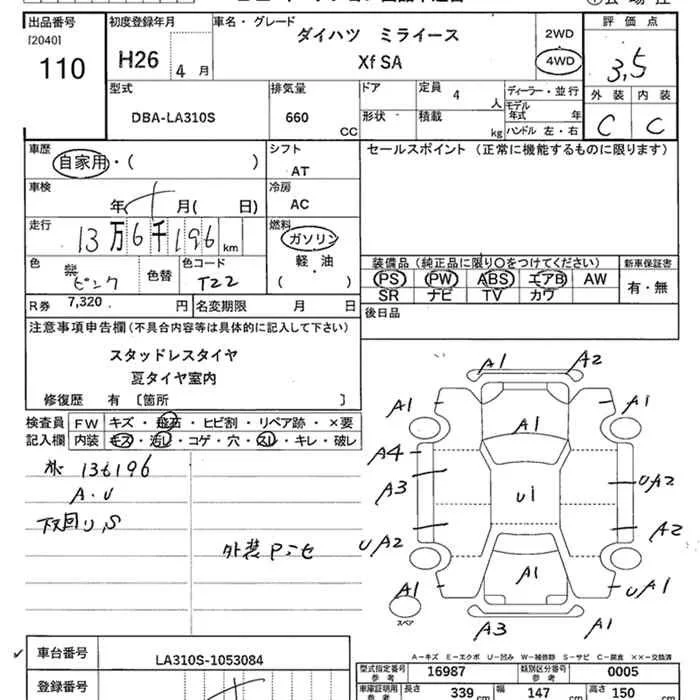 出品番号
[2040]
110
初度登録年月
H26 4 月
車名・グレード
ダイハツ ミライース
Xf SA
2WD
4WD
評価点
3,5
外装 内装
C C
型式
DBA-LA310S
排気量
660
CC
ドア
形状
定員 4 人
積載 kg
ディーラー・並行
モデル年式 年
ハンドル 左・右
車歴
自家用・( )
シフト
AT
セールスポイント (正常に機能するものに限ります)
車検
年 月( 日)
冷房
AC
走行
13万6千196 km
燃料
ガソリン
軽・油
( )
色
ピンク
色替
色コード
T22
装備品(純正品に限り○をつけてください)
PS PW ABS エアB AW
SR ナビ TV カワ
新車保証書
有・無
R券 7,320 円
名変期限 月 日
後日品
注意事項申告欄(不具合内容等は具体的に記入して下さい)
スタッドレスタイヤ
夏タイヤ室内
修復歴 有 [箇所 ]
検査員
記入欄
FW キズ・飛石・ヒビ割・リペア跡・×要
内装 キズ・汚レ・コゲ・穴・スレ・キレ・破レ
136196
A・U
下回りS
外装
A1 A2
A1 A1 A1
A4
A3 U1 UA2
UA2 A2
A1 A1 UA1
スペア
A3 A1
A-キズ E-エクボ U-凹み W-補修跡 S-サビ C-腐食 ××-交換済
車台番号
LA310S-1053084
登録番号
型式指定番号
参考
16987
類別区分番号
参考
0005
車庫証明用
参考
長さ 339 cm 幅 147 cm 高さ 150 cm